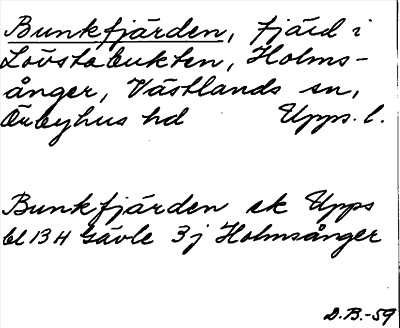 Bunkfjärden, fjärd i
Lövstabukten, Holms-
ånger, Västlands sn,
Örbyhus hd Upps. l.
Bunkfjärden ek Upps
bl 13 H Gävle 3 j Holmsånger
D.B.-59